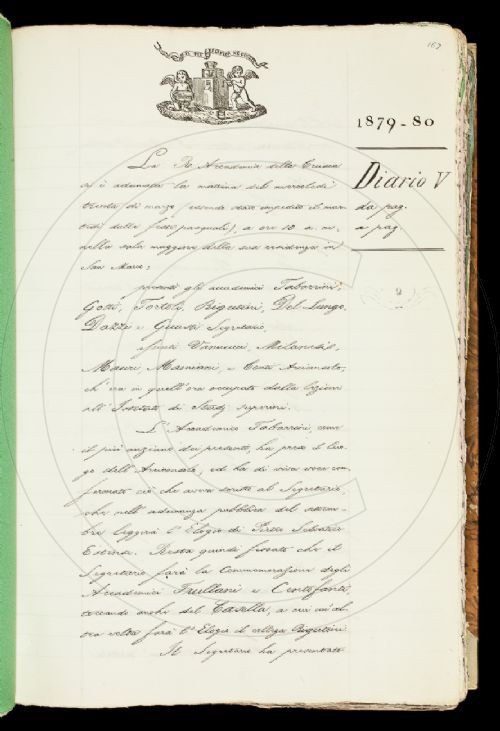 163
1879-80
Diario V
da pag.
a pag.
La R. Accademia della Crusca
si è adunata la mattina del mercoledì
trenta di marzo (essendo stato impedito il mar
tedì dalle feste pasquali), a ore 10 a. m.
nella sala maggiore della sua residenza in
San Marco;
presenti gli accademici Tabarrini,
Gotti, Tortoli, Rigutini, Del Lungo,
Dazzi e Guasti Segretario,
assenti Vannucci, Milanesi,
Mauri, Mamiani, e Conti Arciconsolo,
ch'era in quell'ora occupato dalla lezione
all'Istituto di Studj superiori.
L'Accademico Tabarrini, come
il più anziano dei presenti, ha preso il luo-
go dell'Arciconsolo, ed ha di viva voce con
fermato ciò che aveva scritto al Segretario,
che nell'adunanza pubblica del settem-
bre leggerà l'Elogio di
Resta quindi fissato che il
Segretario farà la Commemorazione degli
Accademici Frullani e Centofanti,
toccando anche del Casella, a cui un'al
tra volta farà l'Elogio il collega Rigutini.
Il Segretario ha presentato